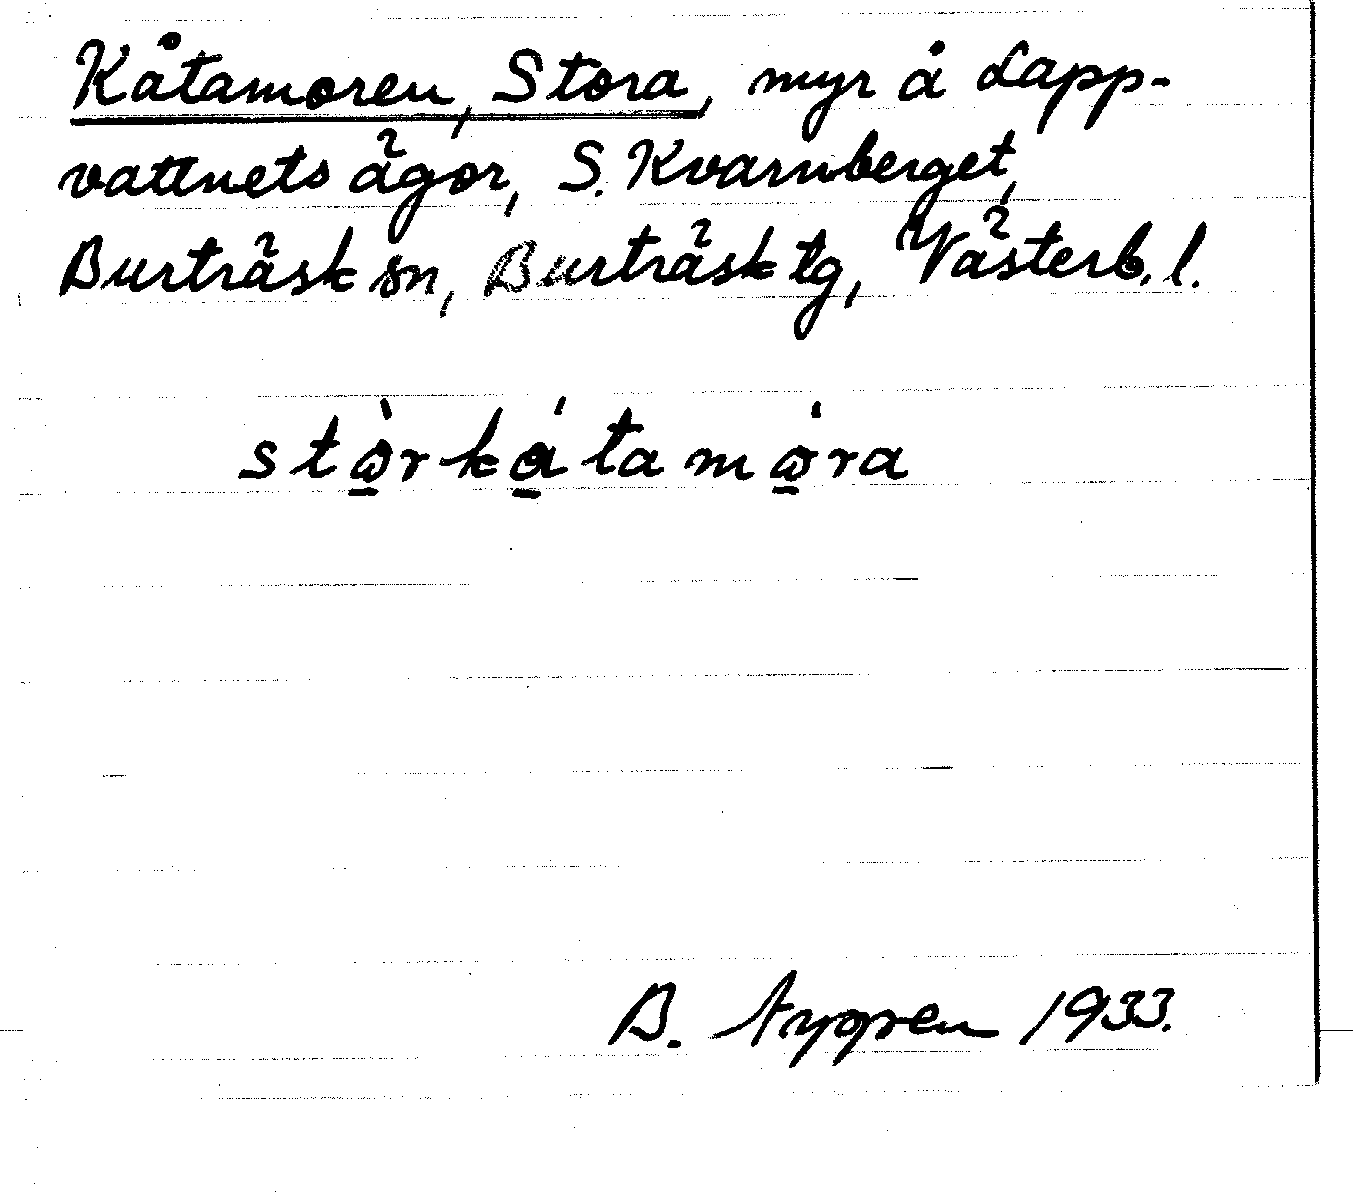 Kåtamoren, Stora, myr å Lapp-
vattnets ägor, S. Kvarnberget,
Burträsk sn, Burträsk tg, Västerb. l.
B. 1933.